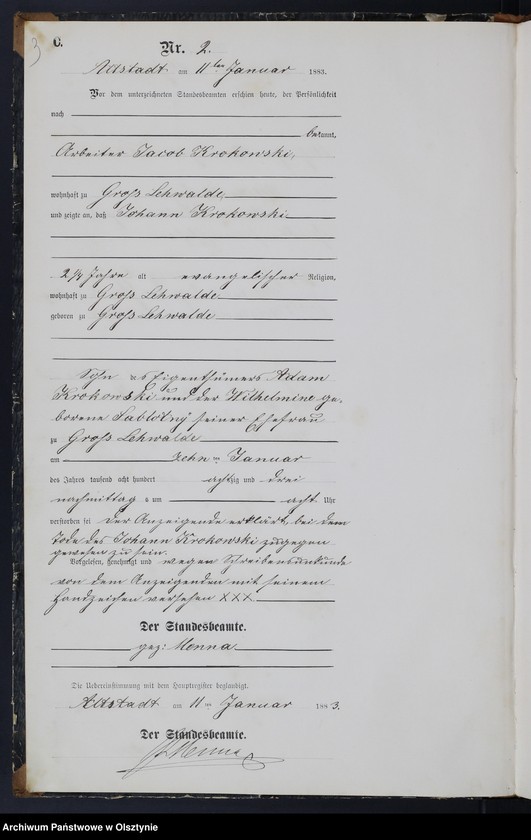 3
C.
Nr. 2.
Altstadt am 11ten Januar 1883.
Vor dem unterzeichneten Standesbeamten erschien heute, der Persönlichkeit
nach
bekannt,
Arbeiter Jacob Krokowski,
wohnhaft zu Groß Lehwalde
und zeigte an, daß Johann Krokowski
2 3/4 Jahre alt evangelischer Religion,
wohnhaft zu Groß Lehwalde
geboren zu Groß Lehwalde
Sohn des Eigenthümers Adam
Krokowski und der Wilhelmine ge-
borene Sablotny seiner Ehefrau
zu Groß Lehwalde
am zehnten Januar
des Jahres tausend acht hundert achtzig und drei
nachmittag s um acht Uhr
verstorben sei der Anzeigende erklärt, bei dem
Tode des Johann Krokowski zugegen
gewesen zu sein.
Vorgelesen, genehmigt und wegen Schreibensunkunde
von dem Anzeigenden mit seinem
Handzeichen versehen XXX
Der Standesbeamte.
gez: Menna
Die Uebereinstimmung mit dem Hauptregister beglaubigt.
Altstadt am 11ten Januar 1883.
Der Standesbeamte.
Menna
Archiwum Państwowe w Olsztynie